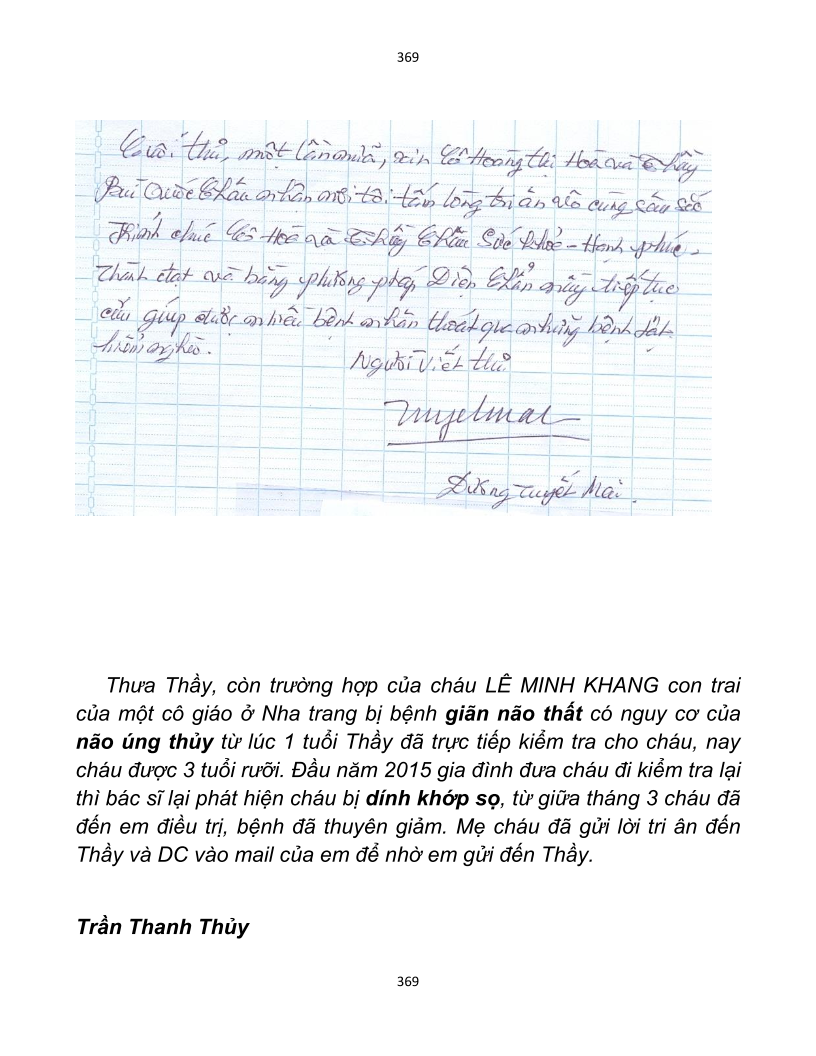 369
Cuối thư, một lần nữa, xin Cô Hoàng thị Hoà và Thầy
Bùi Quốc Châu nhận nơi tôi tấm lòng tri ân vô cùng sâu sắc
Kính chúc Cô Hoà và Thầy Châu Sức khỏe - Hạnh phúc -
Thành đạt và bằng phương pháp Diện Chẩn này tiếp tục
cứu giúp được nhiều bệnh nhân thoát qua những bệnh tật
hiểm nghèo.
Người viết thư
Tuyetmai
Dương Tuyết Mai.
Thưa Thầy, còn trường hợp của cháu LÊ MINH KHANG con trai
của một cô giáo ở Nha trang bị bệnh giãn não thất có nguy cơ của
não úng thủy từ lúc 1 tuổi Thầy đã trực tiếp kiểm tra cho cháu, nay
cháu được 3 tuổi rưỡi. Đầu năm 2015 gia đình đưa cháu đi kiểm tra lại
thì bác sĩ lại phát hiện cháu bị dính khớp sọ, từ giữa tháng 3 cháu đã
đến em điều trị, bệnh đã thuyên giảm. Mẹ cháu đã gửi lời tri ân đến
Thầy và DC vào mail của em để nhờ em gửi đến Thầy.
Trần Thanh Thủy
369